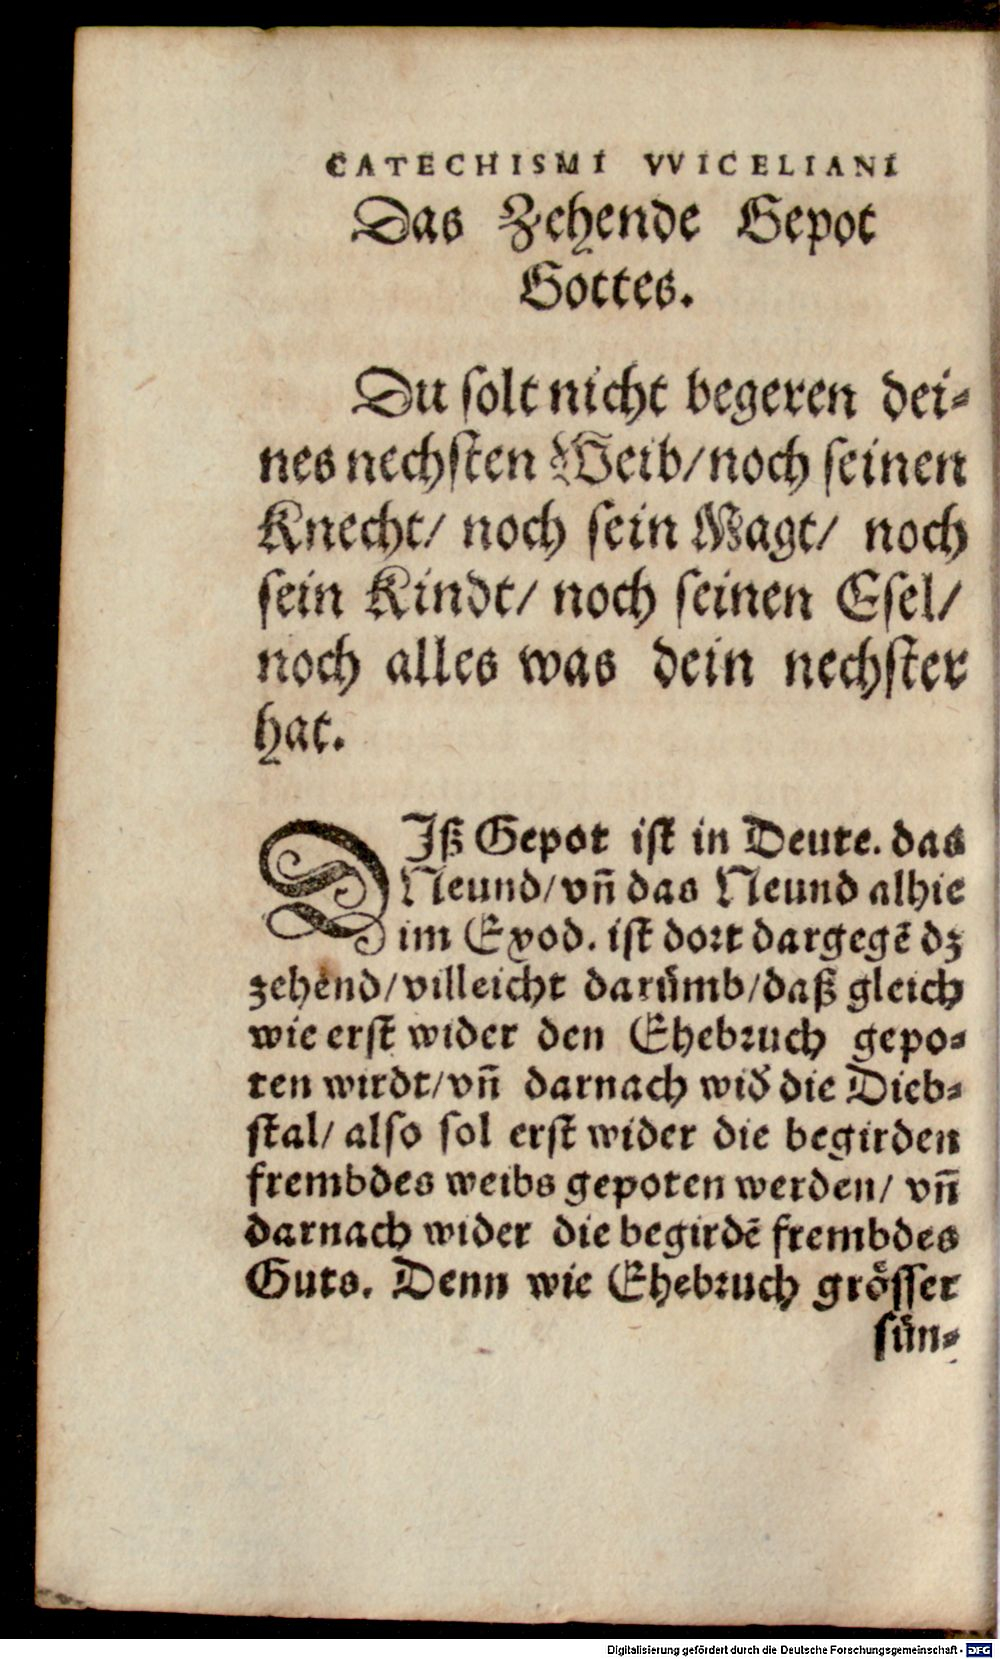 CATECHISMI VVICELIANI
Das Zehende Gepot
Gottes.
Du solt nicht begeren dei⸗
nes nechsten Weib/noch seinen
Knecht/ noch sein Magt/ noch
sein Kindt/ noch seinen Esel/
noch alles was dein nechster
hat.
DIß Gepot ist in Deute. das
Neund/vn̄ das Neund alhie
im Exod. ist dort dargegē dz
zehend/villeicht darümb/daß gleich
wie erst wider den Ehebruch gepo⸗
ten wirdt/vn̄ darnach wid̓ die Dieb⸗
stal/ also sol erst wider die begirden
frembdes weibs gepoten werden/ vn̄
darnach wider die begirdē frembdes
Guts. Denn wie Ehebruch grösser
sün⸗
Digitalisierung gefördert durch die Deutsche Forschungsgemeinschaft - DFG